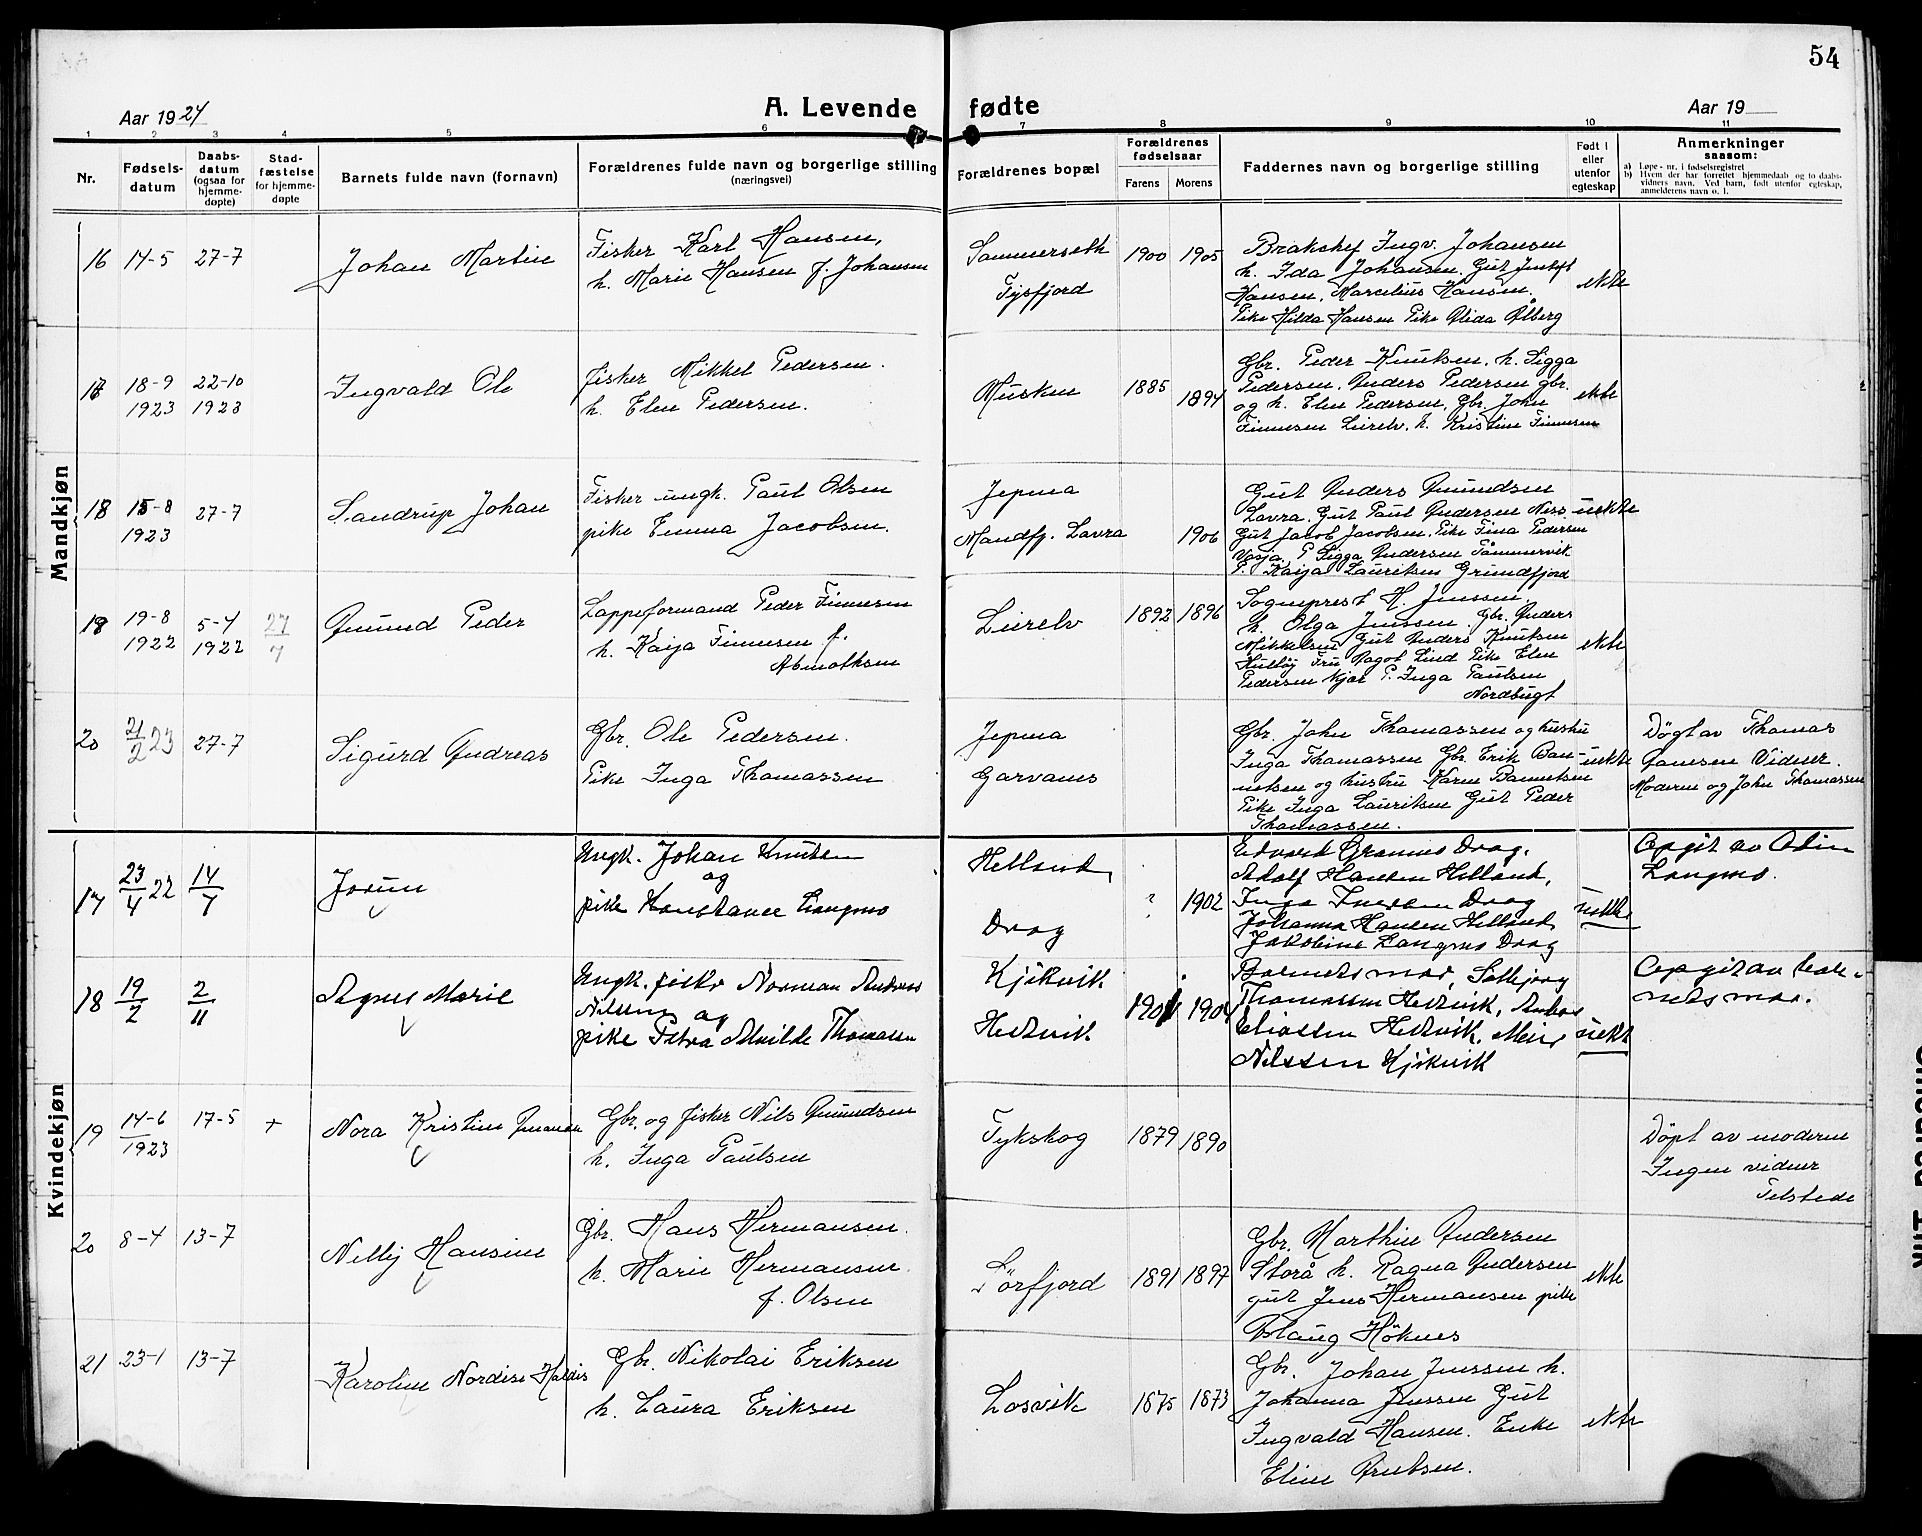 54
Aar 1924
A. Levende fødte
Aar 19
1 2 3 4 5 6 7 8 9 10 11
Nr.
Fødsels-
datum
Daabs-
datum
(ogsaa for
hjemme-
døpte)
Stad-
fæstelse
for hjemme-
døpte
Barnets fulde navn (fornavn)
Forældrenes fulde navn og borgerlige stilling
(næringsvei)
Forældrenes bopæl
Forældrenes
fødselsaar
Farens
Morens
Faddernes navn og borgerlige stilling
Født i
eller
utenfor
egteskap
Anmerkninger
saasom:
a) Løpe-nr. i fødselsregistret
b) Hvem der har forrettet hjemmedaab og to daabs-
vidners navn. Ved barn, født utenfor egteskap,
anmelderens navn o. l.
Mandkjøn
16 14-5 27-7
Johan Martin
Fisker Karl Hansen,
h. Marie Hansen f. Johansen
Sammerseth
Tysfjord
1900 1905
Ingv. Johansen
h. Ida Johansen. Gut
Hansen, Marcelius Hansen.
Pike Hilda Hansen Pike Alida Ålberg
ekte
17 18-9 22-10
1923 1923
Ingvald Ole
fisker Mikkel Pedersen.
h. Elen Pedersen.
Musken
1885 1894
Gbr. Peder Knutsen, h. Sigga
Pedersen, Anders Pedersen gbr.
og h. Elen Pedersen, Gbr. John
Finnesen Lirelv, h. Kristine Finnesen
ekte
18 15-8 27-7
1923
Sandrup Johan
Fisker ungk. Paul Olsen
pike Emma Jacobsen.
Jepma
Mandfj. Lavra
1906
Gut Anders Amundsen
Lavra, Gut Paul Andersen
Gut Jacob Jacobsen, Pike Fina Pedersen
P. Sigga Andersen Tømmervik
P. Kaija Lauritsen Grundfjord
uekte
19-8 5-4 27/7
1922 1922
Amund Peder
Lappeformand Peder Finnesen
h. Kaija Finnesen f.
Abmothsen
Lirelv
1892 1896
Sogneprest H. Jenssen,
h. Olga Jenssen. Gbr. Anders
Mikkelsen Gut Anders Knutsen
Fru Lind Pike Elen
Pedersen Kjær P. Inga Paulsen
Nordbugt
ekte
20 21/2 23 27-7
Sigurd Andreas
Gbr. Ole Pedersen.
Pike Inga Thomassen
Jepma
Garvanes
Gbr. John Thomassen og hustru
Inga Thomassen Gbr. Erik Ban-
netsen og hustru Karen Bannetsen
Pike Inga Lauritsen Gut Peder
Thomassen.
uekte
Døpt av Thomas
Vidner.
Moderen og John Thomassen
Kvindekjøn
17 23/4 22 14/7
Jorun
Ungk. Johan Knutsen
og
pike Konstance Langmo
Helland
Drag
? 1902
Edvard Drag.
Adolf Hansen Helland,
Inga Iversen Drag
Johanna Hansen Helland
Jakobine Langmo Drag
uekte
Opgit av Odin
Langmo.
18 19/2 2/11
Agnes Marie
Ungk. fisker Norman Andreas
Nilsen og
pike Petra Alvilde Thomassen
Kjikvik
Hestvik
1901 1904
Barnets mor, Solbjørg
Thomassen Hestvik,
Eliassen Hestvik,
Nilssen Kjikvik
uekt
Opgit av bar-
nets mor.
19 14-6 17-5 +
1923
Nora Kristine
Gbr. og fisker Nils Amundsen
h. Inga Paulsen
Tykskog
1879 1890
Døpt av moderen
Ingen vidner
Tilstede
20 8-4 13-7
Nelly Hansine
Gbr. Hans Hermansen.
h. Marie Hermansen
f. Olsen
Sørfjord
1891 1897
Gbr. Marthin Andersen
Storå h. Ragna Andersen
gut Jens Hermansen pike
Aslaug Höknes
ekte
21 23-1 13-7
Karoline Nordise Haldis
Gbr. Nikolai Eriksen
h. Laura Eriksen
Losvik
1875 1873
Gbr. Johan Jenssen h.
Johanna Jenssen Gut
Ingvald Hansen. Enke
Eline
ekte